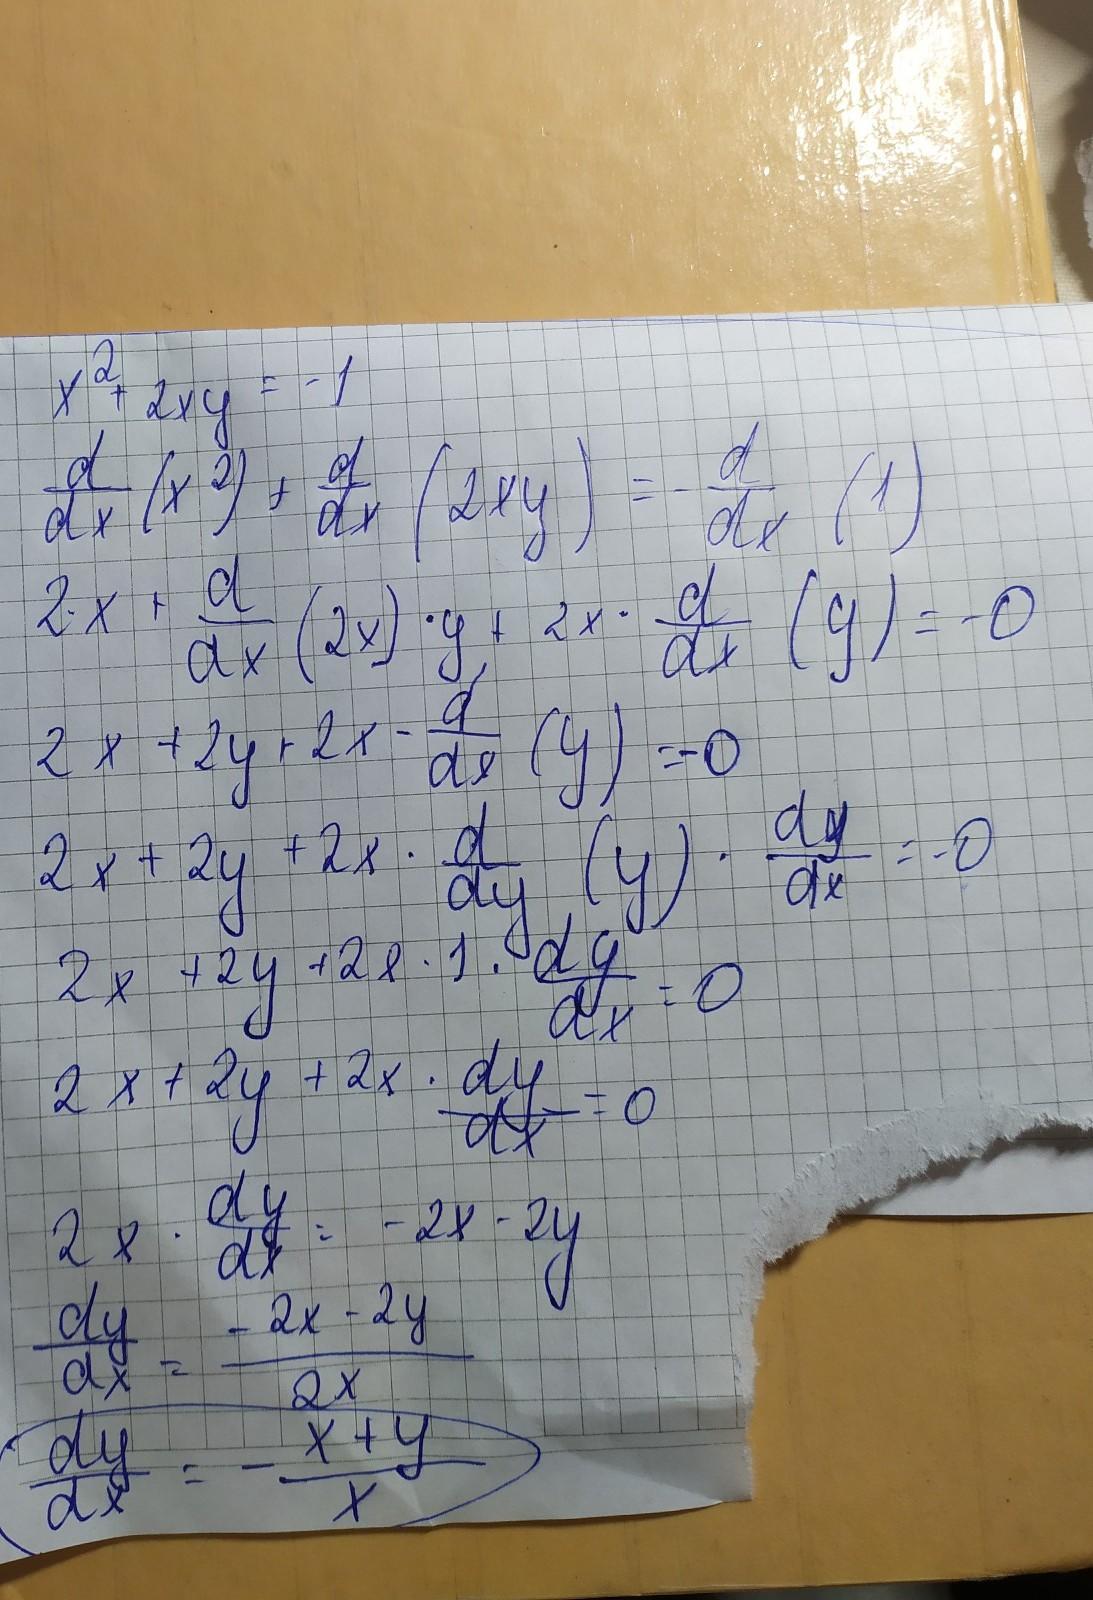 x² + 2xy = -1
d/dx (x²) + d/dx (2xy) = - d/dx (1)
2·x + d/dx (2x) · y + 2x · d/dx (y) = -0
2x + 2y + 2x - d/dx (y) = -0
2x + 2y + 2x · d/dy (y) · dy/dx = -0
2x + 2y + 2x · 1 · dy/dx = 0
2x + 2y + 2x · dy/dx = 0
2x · dy/dx = -2x - 2y
dy/dx = (-2x - 2y)/2x
dy/dx = - (x + y)/x